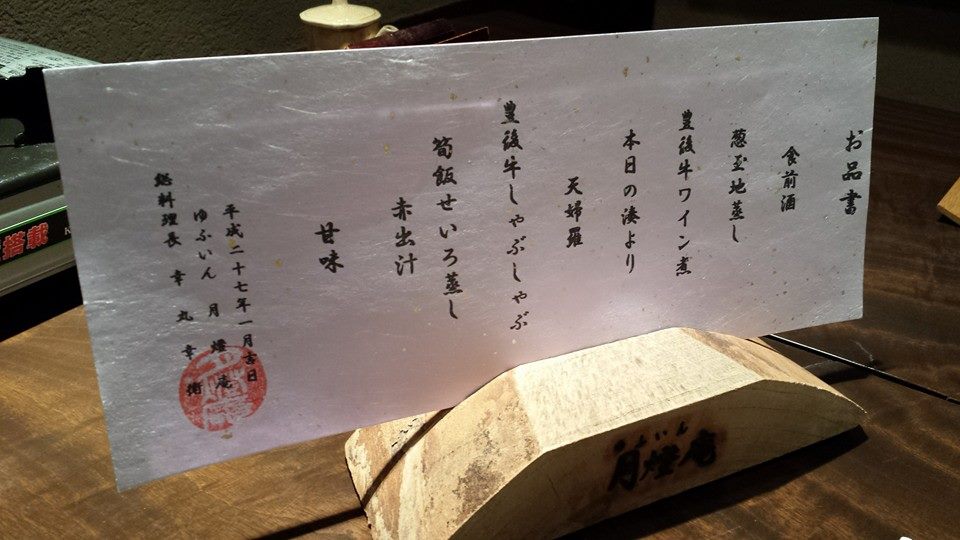 お品書
食前酒
葱玉地蒸し
豊後牛ワイン煮
本日の湊より
天婦羅
豊後牛しゃぶしゃぶ
筍飯せいろ蒸し
赤出汁
甘味
平成二十七年一月吉日
ゆふいん 月燈庵
総料理長 幸丸幸衛
ゆふいん
月燈庵
搭載